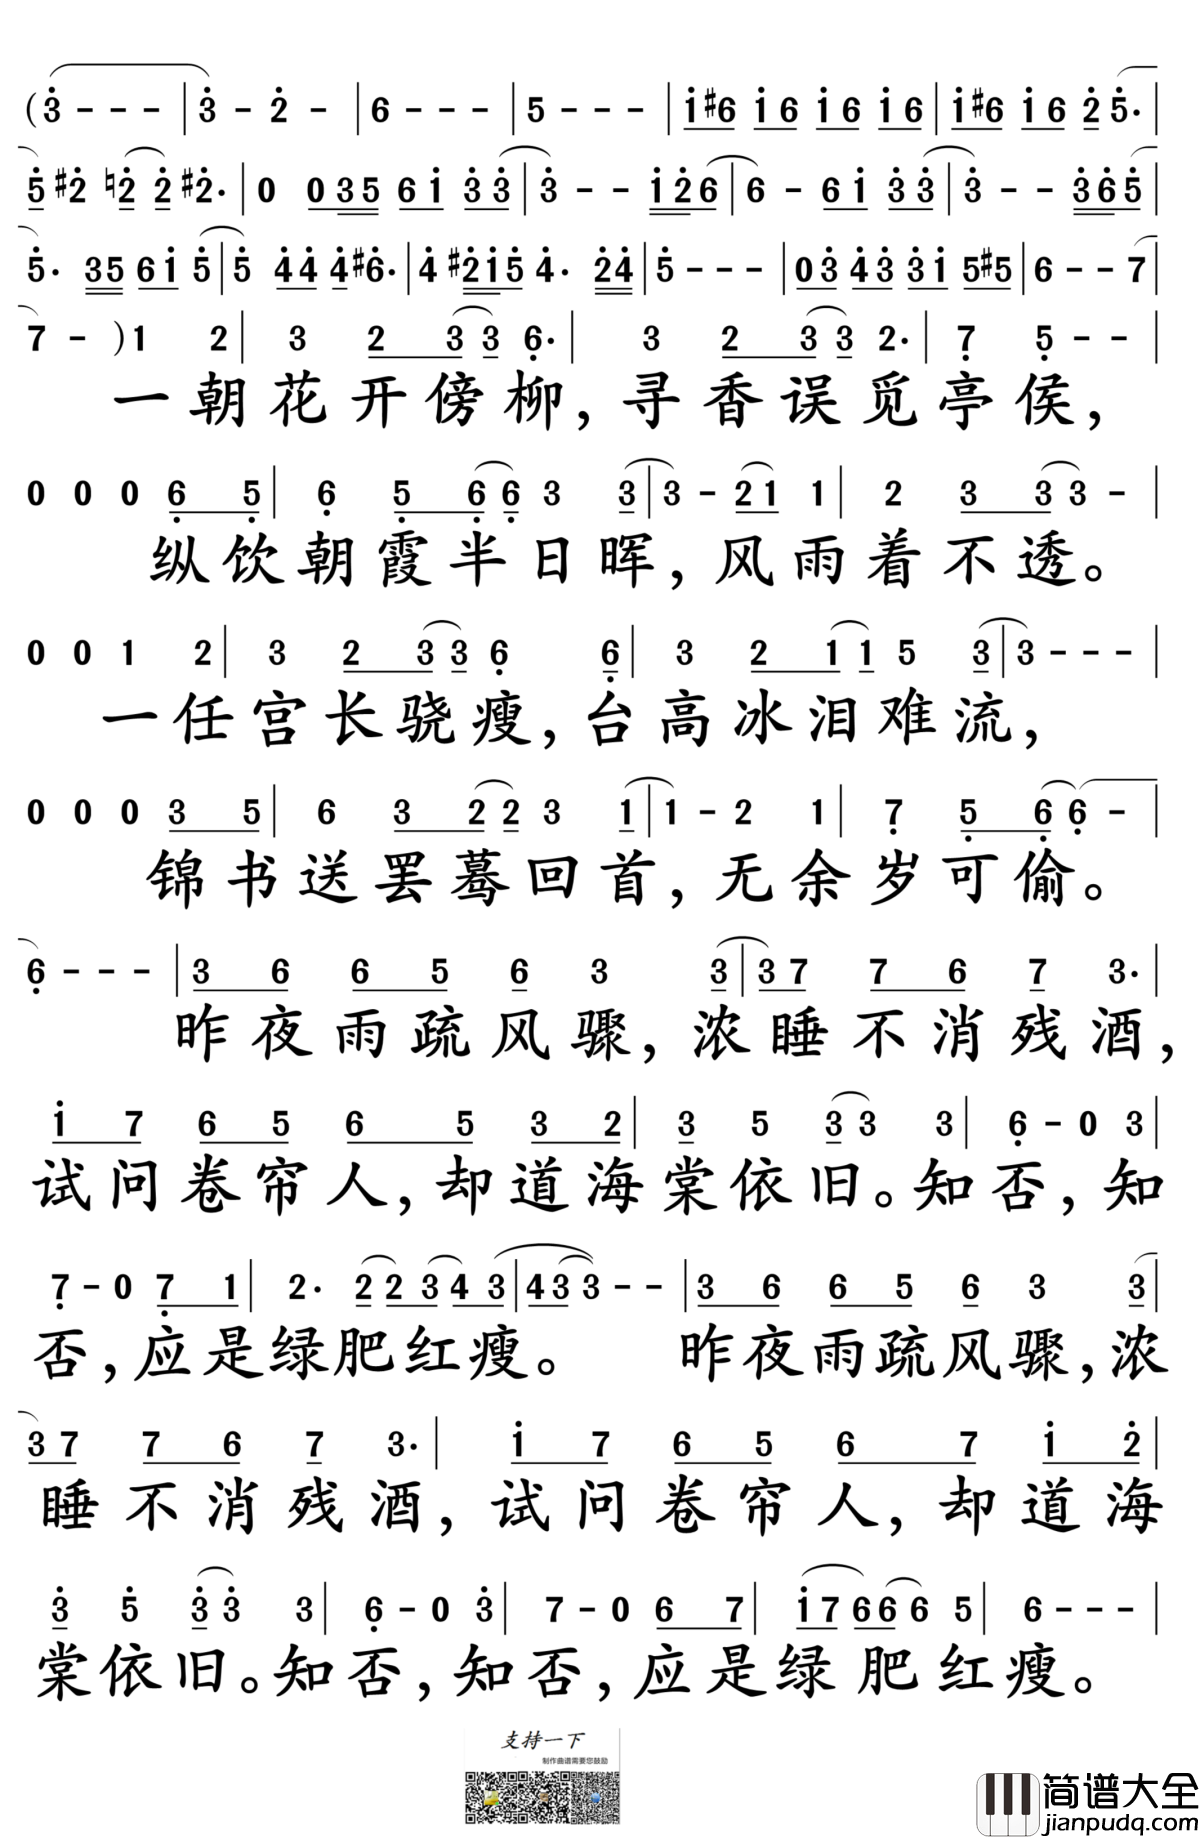 (3̇ - - - | 3̇ - 2̇ - | 6 - - - | 5 - - - | 1̇ #6 1̇ 6 1̇ 6 1̇ 6 | 1̇ #6 1̇ 6 2̇ 5̇. |
5̇ #2̇ ♮2̇ 2̇ #2̇. | 0 0 3 5 6 1̇ 3̇ 3̇ | 3̇ - - 1̇ 2̇ 6 | 6 - 6 1̇ 3̇ 3̇ | 3̇ - - 3̇ 6̇ 5̇ |
5̇. 3 5 6 1̇ 5̇ | 5̇ 4̇ 4̇ 4̇ #6̇. | 4̇ #2̇ 1̇ 5̇ 4̇. 2̇ 4̇ | 5̇ - - - | 0 3̇ 4̇ 3̇ 3̇ 1̇ 5 #5 | 6 - - 7 |
7 - ) 1 2 | 3 2 3 3 6̣. | 3 2 3 3 2. | 7̣ 5̣ - - |
一朝花开傍柳，寻香误觅亭侯，
0 0 0 6̣ 5̣ | 6̣ 5̣ 6̣ 6̣ 3 3 | 3 - 2 1 1 | 2 3 3 3 - |
纵饮朝霞半日晖，风雨着不透。
0 0 1 2 | 3 2 3 3 6̣ 6̣ | 3 2 1 1 5 3 | 3 - - - |
一任宫长骁瘦，台高冰泪难流，
0 0 0 3 5 | 6 3 2 2 3 1 | 1 - 2 1 | 7̣ 5̣ 6̣ 6̣ - |
锦书送罢蓦回首，无余岁可偷。
6̣ - - - | 3 6 6 5 6 3 3 | 3 7 7 6 7 3. |
昨夜雨疏风骤，浓睡不消残酒，
1̇ 7 6 5 6 5 3 2 | 3 5 3 3 3 | 6̣ - 0 3 |
试问卷帘人，却道海棠依旧。知否，知
7̣ - 0 7̣ 1 | 2. 2 2 3 4 3 | 4 3 3 - - | 3 6 6 5 6 3 3 |
否，应是绿肥红瘦。 昨夜雨疏风骤，浓
3 7 7 6 7 3. | 1̇ 7 6 5 6 7 1̇ 2̇ |
睡不消残酒，试问卷帘人，却道海
3̇ 5̇ 3̇ 3̇ 3 | 6̇ - 0 3̇ | 7 - 0 6 7 | 1̇ 7 6 6 6 5 | 6 - - - |
棠依旧。知否，知否，应是绿肥红瘦。
支持一下
制作曲谱需要您鼓励
简谱大全
jianpudq.com